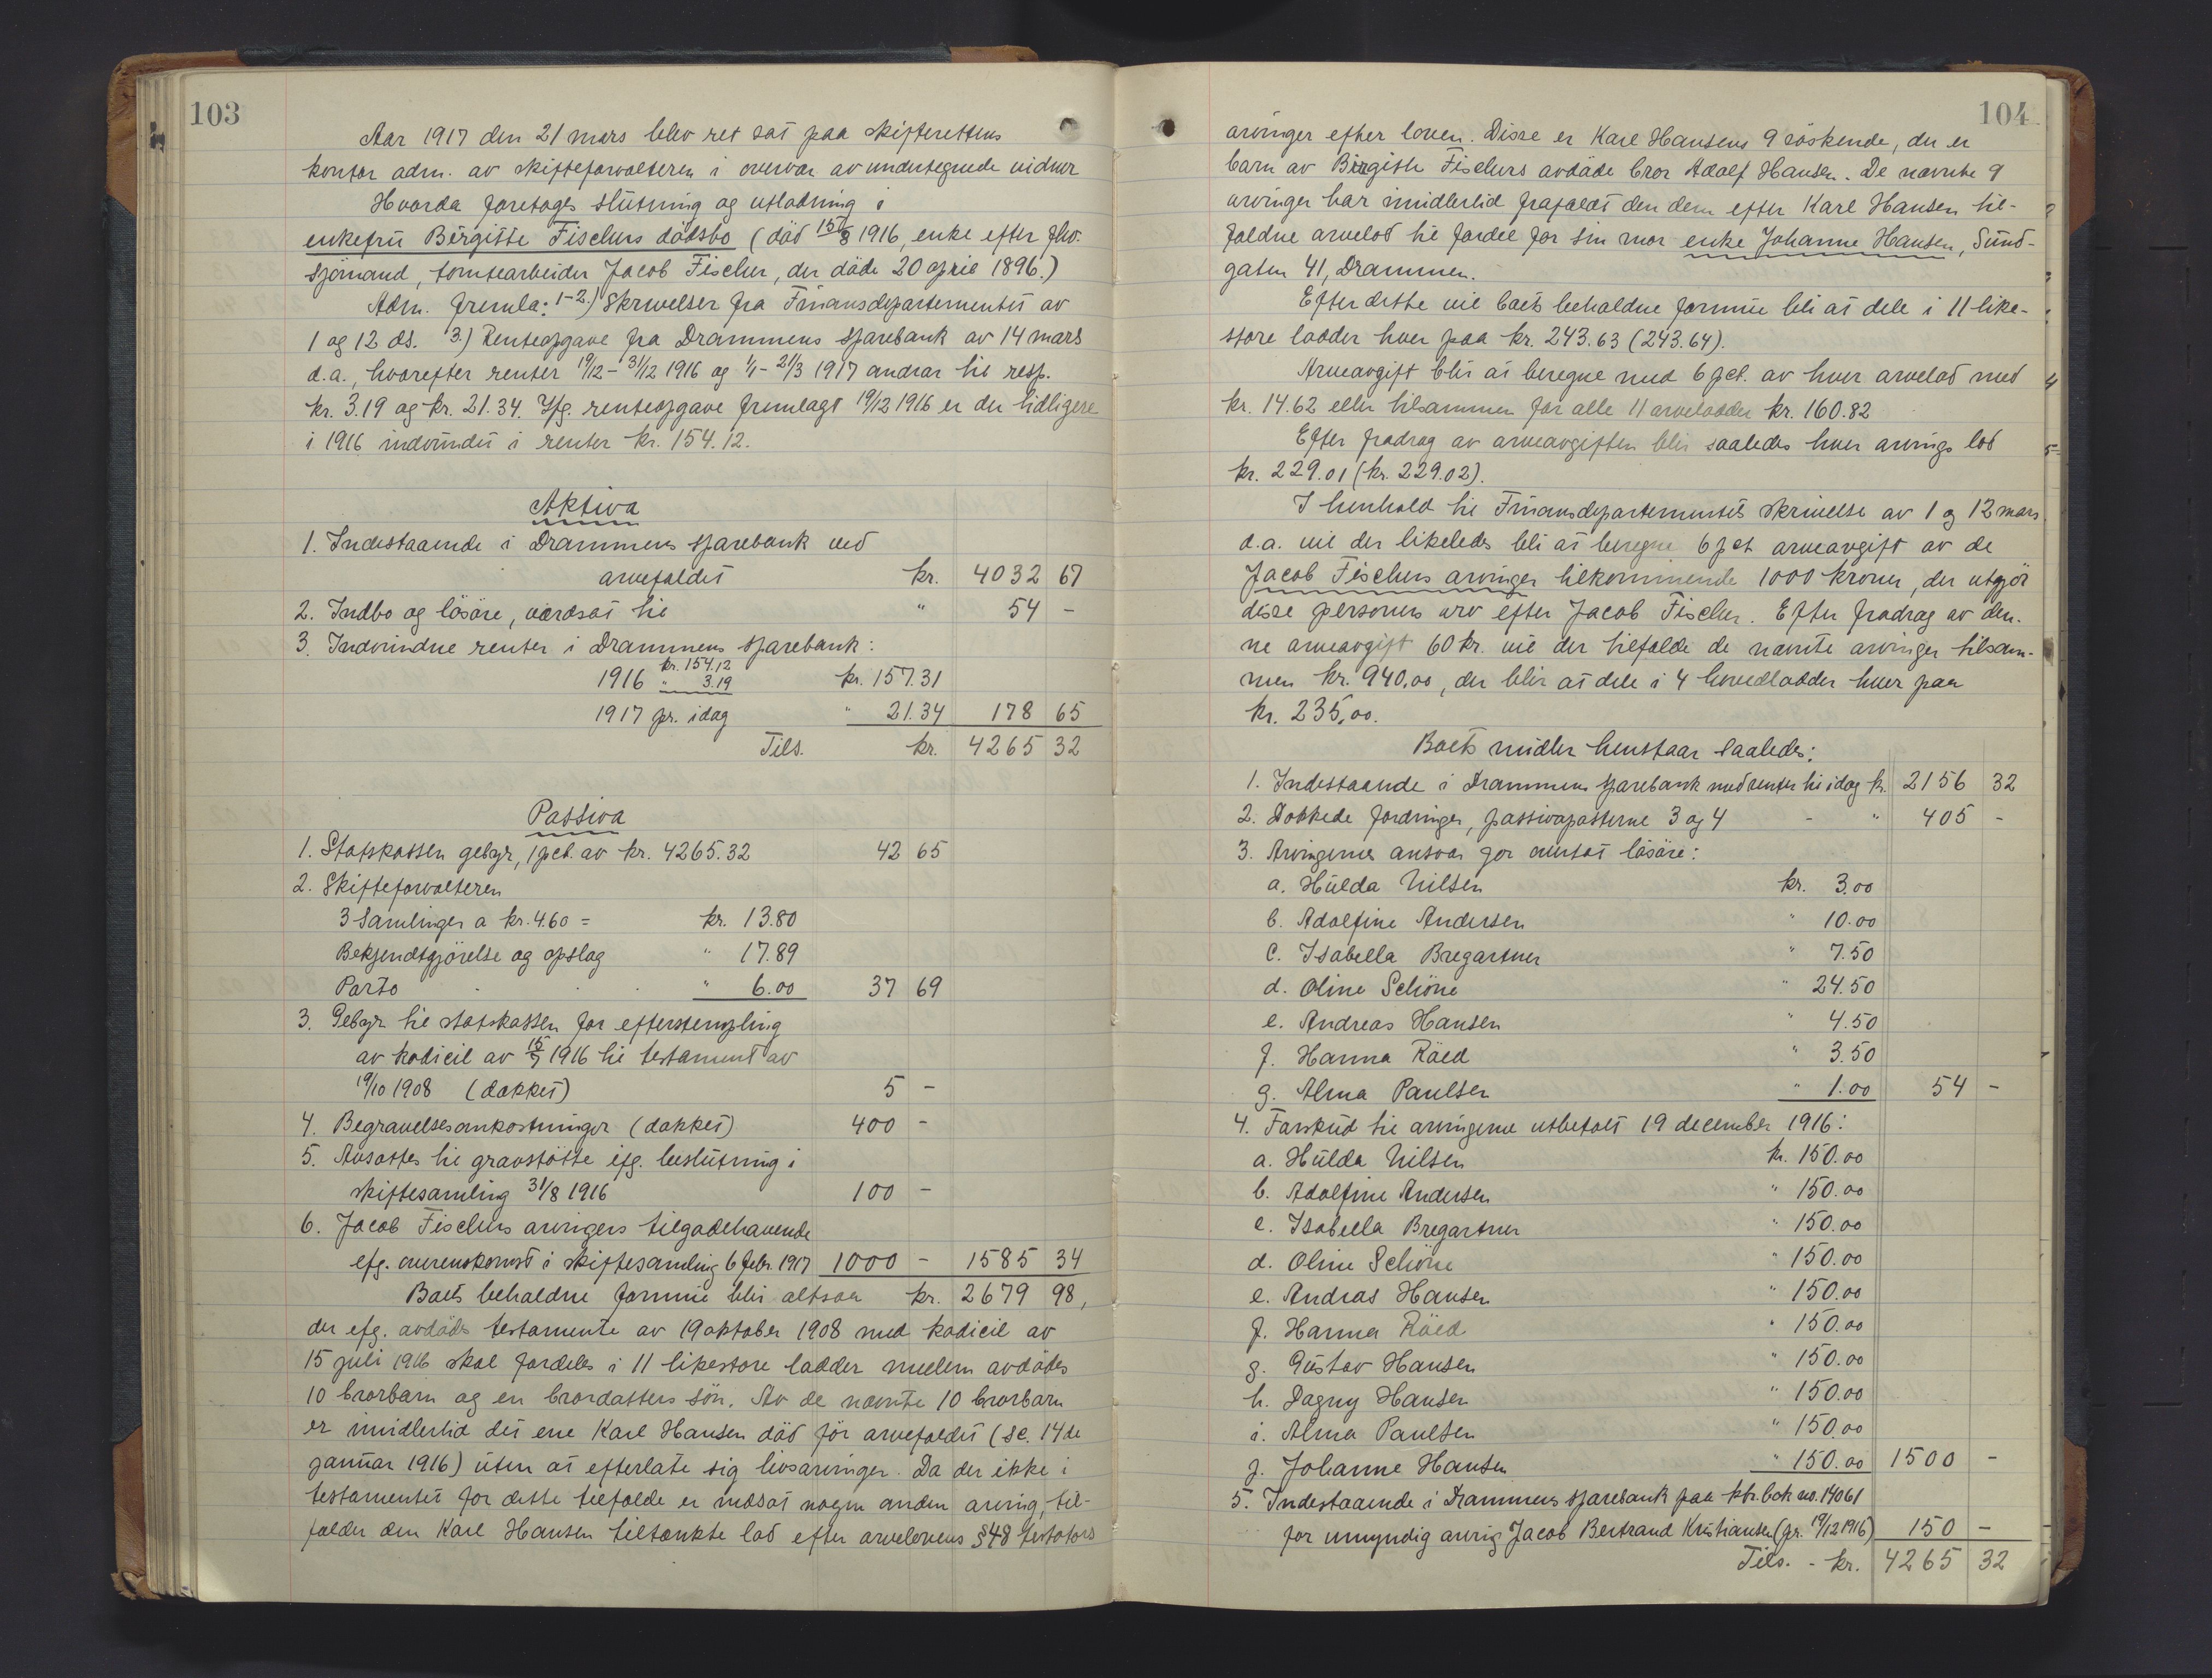 103
Aar 1917 den 21 mars blev ret sat paa skifterettens
kontor adm. av skifteforvalteren i overvær av undertegnede vidner
Hvorda foretages slutning og utlodning i
enkefru Birgitte Fischers dödsbo (död 15/8 1916, enke efter fhv.
sjömand, tomtearbeider Jacob Fischer, der döde 20 april 1896.)
Adm. fremla: 1-2.) Skrivelser fra Finansdepartementet av
1 og 12 ds. 3.) Renteopgave fra Drammens sparebank av 14 mars
d.a., hvorefter renter 19/12 - 31/12 1916 og 1/1 - 21/3 1917 andrar til resp.
kr. 3.19 og kr. 21.34. Ifg. renteopgave fremlagt 19/12 1916 er der tidligere
i 1916 indvundet i renter kr. 154.12.
Aktiva
1. Indestaaende i Drammens sparebank ved
arvefaldet kr. 4032 67
2. Indbo og lösöre, værdsat til " 54 -
3. Indvundne renter i Drammens sparebank:
kr. 154.12
1916 " 3.19 kr. 157.31
1917 pr. idag " 21.34 178 65
Tils. kr. 4265 32
Passiva
1. Statskassen gebyr, 1 pct. av kr. 4265.32 42 65
2. Skifteforvalteren
3 samlinger a kr. 4.60 = kr. 13.80
Bekjendtgjörelse og opslag " 17.89
Porto " 6.00 37 69
3. Gebyr til statskassen for efterstempling
av kodicil av 15/7 1916 til testament av
19/10 1908 (dækket) 5 -
4. Begravelsesomkostninger (dækket) 400 -
5. Avsættes til gravstötte efg. beslutning i
skiftesamling 31/8 1916 100 -
6. Jacob Fischers arvingers tilgodehavende
efg. overenskomst i skiftesamling 6 febr. 1917 1000 - 1585 34
Boets beholdne formue blir altsaa kr. 2679 98,
der efg. avdödes testamente av 19 oktober 1908 med kodicil av
15 juli 1916 skal fordeles i 11 likestore lodder mellem avdödes
10 brorbarn og en brordatters sön. Av de nævnte 10 brorbarn
er imidlertid det ene Karl Hansen död för arvefaldet (sc. 14de
januar 1916) uten at efterlate sig livsarvinger. Da der ikke i
testamentet for dette tilfælde er indsat nogen anden arving, til-
falder den Karl Hansen tiltænkte lod efter arvelovens §48 testators
104
arvinger efter loven. Disse er Karl Hansens 9 söskende, der er
barn av Birgitte Fischers avdöde bror Adolf Hansen. De nævnte 9
arvinger har imidlertid frafaldt den dem efter Karl Hansen til-
faldne arvelod til fordel for sin mor enke Johanne Hansen, Sund-
gaten 41, Drammen.
Efter dette vil boets beholdne formue bli at dele i 11 like-
store lodder hver paa kr. 243.63 (243.64).
Arveavgift blir at beregne med 6 pct. av hver arvelod med
kr. 14.62 eller tilsammen for alle 11 arvelodder kr. 160.82
Efter fradrag av arveavgiften blir saaledes hver arvings lod
kr. 229.01 (kr. 229.02).
I henhold til Finansdepartementets skrivelse av 1 og 12 mars
d.a. vil der likeledes bli at beregne 6 pct arveavgift av de
Jacob Fischers arvinger tilkommende 1000 kroner, der utgjör
disse personers arv efter Jacob Fischer. Efter fradrag av den-
ne arveavgift 60 kr. vil der tilfalde de nævnte arvinger tilsam-
men kr. 940,00, der blir at dele i 4 hovedlodder hver paa
kr. 235,00.
Boets midler henstaar saaledes:
1. Indestaaende i Drammens sparebank med renter til idag kr. 2156 32
2. Dækkede fordringer, passivaposterne 3 og 4 - " 405 -
3. Arvingernes ansvar for uttat lösöre:
a. Hulda Nilsen kr. 3.00
b. Adolfine Andersen " 10.00
c. Isabella Bregartner " 7.50
d. Oline Schöne " 24.50
e. Andreas Hansen " 4.50
f. Hanna Röed " 3.50
g. Alma Paulsen " 1.00 54 -
4. Forskud til arvingerne utbetalt 19 december 1916:
a. Hulda Nilsen kr. 150.00
b. Adolfine Andersen " 150.00
c. Isabella Bregartner " 150.00
d. Oline Schöne " 150.00
e. Andras Hansen " 150.00
f. Hanna Röed " 150.00
g. Gustav Hansen " 150.00
h. Dagny Hansen " 150.00
i. Alma Paulsen " 150.00
j. Johanne Hansen " 150.00 1500 -
5. Indestaaende i Drammens sparebank paa ktr.bok no. 14061
for umyndig arving Jacob Bertrand Kristiansen (pr. 19/12 1916) 150 -
Tils. - kr. 4265 32